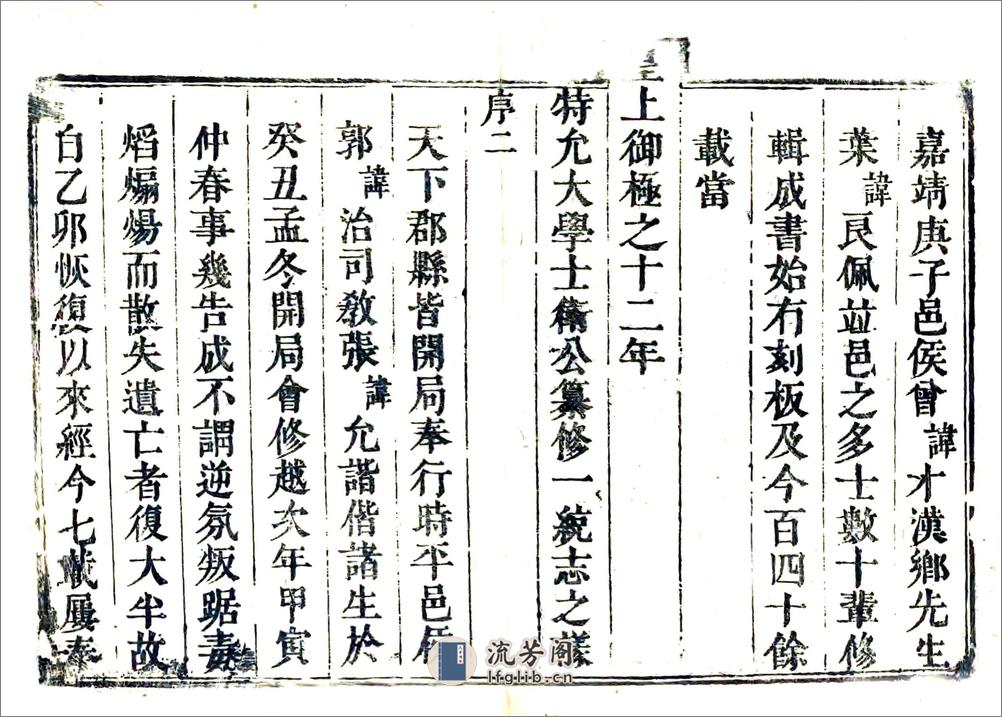 嘉靖庚子邑侯曾諱才漢鄉先生
葉諱良佩並邑之多士數十輩修
輯成書始有刻板及今百四十餘
載當
皇上御極之十二年
特允大學士衛公纂修一統志之議
序二
天下郡縣皆開局奉行時平邑侯
郭諱治司教張諱允諧偕諸生於
癸丑孟冬開局會修越次年甲寅
仲春事幾告成不謂逆氛叛踞毒
熖煽煬而散失遺亡者復大半故
自乙卯恢復以來經今七載屢奉
流芳阁
lfglib.cn